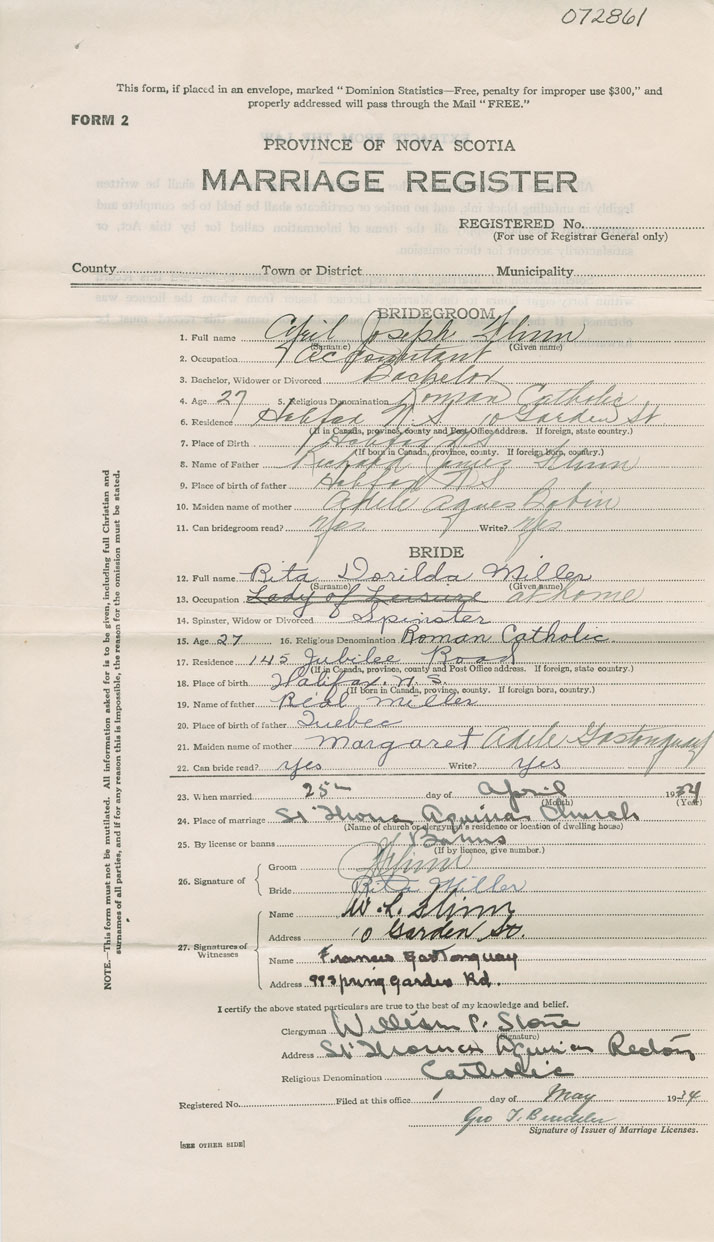 072861
This form, if placed in an envelope, marked "Dominion Statistics—Free, penalty for improper use $300," and
properly addressed will pass through the Mail "FREE."
FORM 2
PROVINCE OF NOVA SCOTIA
MARRIAGE REGISTER
REGISTERED No.
(For use of Registrar General only)
County Town or District Municipality
BRIDEGROOM
1. Full name Joseph Flinn
(Surname) (Given name)
2. Occupation Accountant
3. Bachelor, Widower or Divorced Bachelor
4. Age 27 5. Religious Denomination Roman Catholic
6. Residence Halifax N.S. 10 Garden St
(If in Canada, province, county and Post Office address. If foreign, state country.)
7. Place of Birth Halifax N.S
(If born in Canada, province, county. If foreign born, country.)
8. Name of Father Richard James Flinn
9. Place of birth of father Halifax N.S
10. Maiden name of mother Adele Agnes Bobin
11. Can bridegroom read? Yes Write? Yes
BRIDE
12. Full name Rita Dorilda Miller
(Surname) (Given name)
13. Occupation Lady of Leisure at home
14. Spinster, Widow or Divorced Spinster
15. Age 27 16. Religious Denomination Roman Catholic
17. Residence 145 Jubilee Road
(If in Canada, province, county and Post Office address. If foreign, state country.)
18. Place of birth Halifax. N.S.
(If born in Canada, province, county. If foreign born, country.)
19. Name of father Réal Miller
20. Place of birth of father Quebec
21. Maiden name of mother Margaret Adele Gastonguay
22. Can bride read? yes Write? yes
23. When married 25th day of April 1934
(Month) (Year)
24. Place of marriage St Thomas Aquinas Church
(Name of church or clergyman's residence or location of dwelling house)
25. By license or banns Banns
(If by licence, give number.)
26. Signature of Groom Flinn
Bride Rita Miller
27. Signatures of Witnesses
Name W. L. Flinn
Address 10 Garden St.
Name Frances Gastonguay
Address 99 Spring Garden Rd.
I certify the above stated particulars are true to the best of my knowledge and belief.
Clergyman William P. Stone
(Signature)
Address St Thomas Aquinas
Religious Denomination Catholic
Registered No. Filed at this office 1 day of May 1934
Geo T.
Signature of Issuer of Marriage Licenses.
[SEE OTHER SIDE]
NOTE.—This form must not be mutilated. All information asked for is to be given, including full Christian and
surnames of all parties, and if for any reason this is impossible, the reason for the omission must be stated.